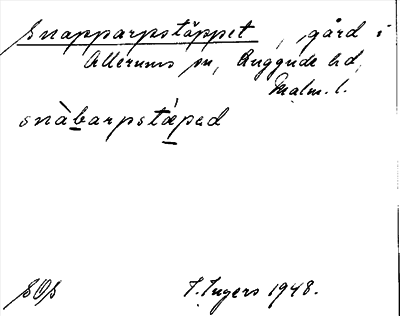 Snapparpstäppet, gård i
Allerums sn, Luggude hd,
Malm. l.
snàbarpstǽped
SOS
I. Ingers 1948.